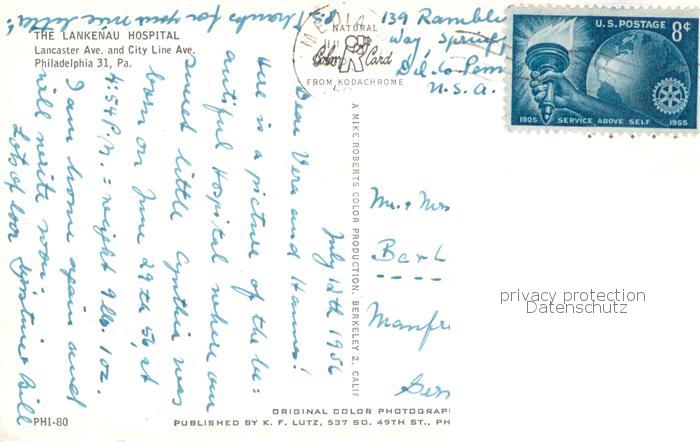 THE LANKENAU HOSPITAL
Lancaster Ave. and City Line Ave.
Philadelphia 31, Pa.
P.S. Thanks for your nice letter!
July 12th 1956
Dear Vera and Hannes!
Here is a picture of the be=
autiful Hospital where our
sweet little Cynthia was
born on June 29th 56, at
4:54 P.M. = weight 9 lb. 1 oz.
I am home again and
will write soon.
Lots of love & Bill
PHI-80
NATURAL
Color Card
FROM KODACHROME
A MIKE ROBERTS COLOR PRODUCTION. BERKELEY 2, CALIF
ORIGINAL COLOR PHOTOGRAP
PUBLISHED BY K. F. LUTZ, 537 SO. 49TH ST., PH
MEDIA
139 Rambling
Way, Springf
Del. Co Penn
U.S.A.
U.S. POSTAGE 8¢
1905 SERVICE ABOVE SELF 1955
Mr. + Mrs
Manfre
Ger
privacy protection
Datenschutz